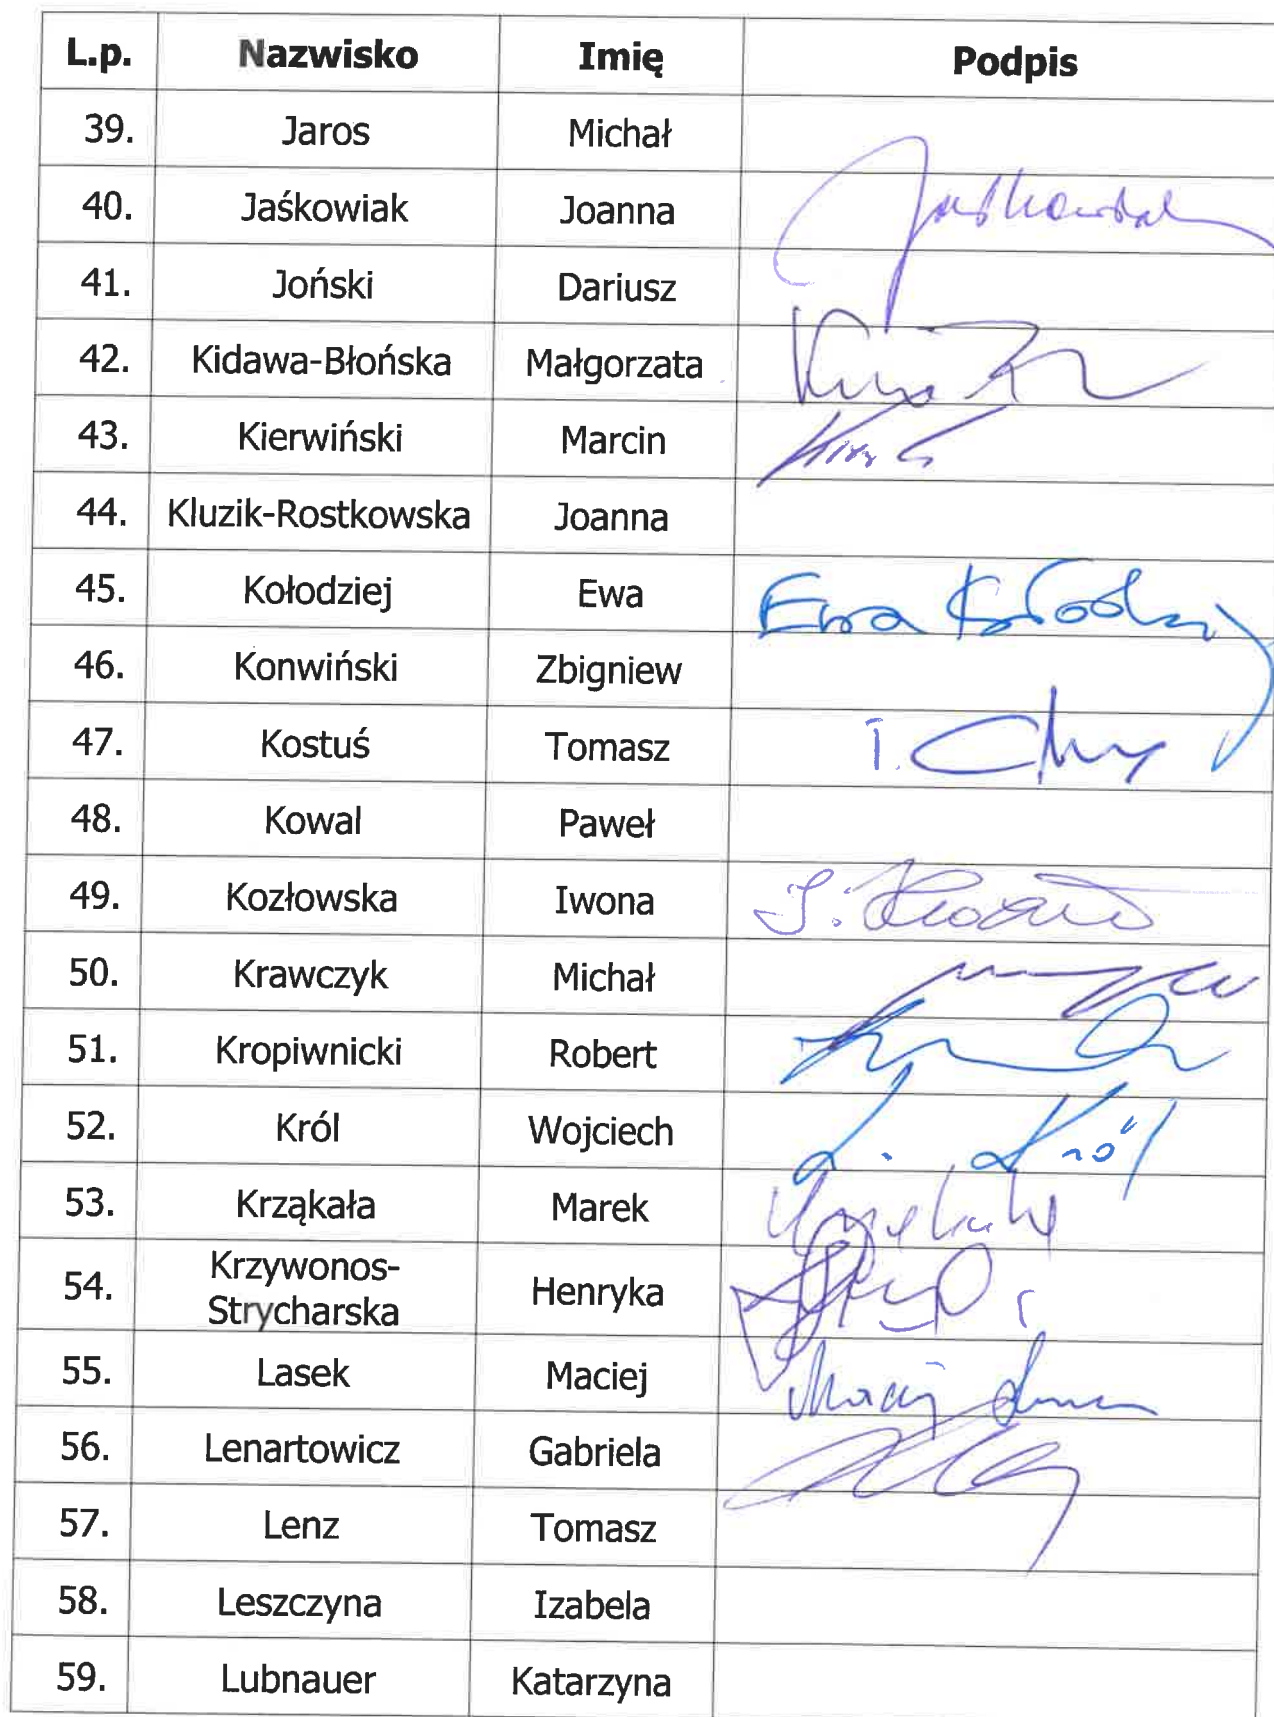 L.p. Nazwisko Imię Podpis
39. Jaros Michał
40. Jaśkowiak Joanna
41. Joński Dariusz
42. Kidawa-Błońska Małgorzata
43. Kierwiński Marcin
44. Kluzik-Rostkowska Joanna
45. Kołodziej Ewa Ewa
46. Konwiński Zbigniew
47. Kostuś Tomasz
48. Kowal Paweł
49. Kozłowska Iwona
50. Krawczyk Michał
51. Kropiwnicki Robert
52. Król Wojciech Król
53. Krząkała Marek
54. Krzywonos-
Strycharska Henryka
55. Lasek Maciej Maciej
56. Lenartowicz Gabriela
57. Lenz Tomasz
58. Leszczyna Izabela
59. Lubnauer Katarzyna